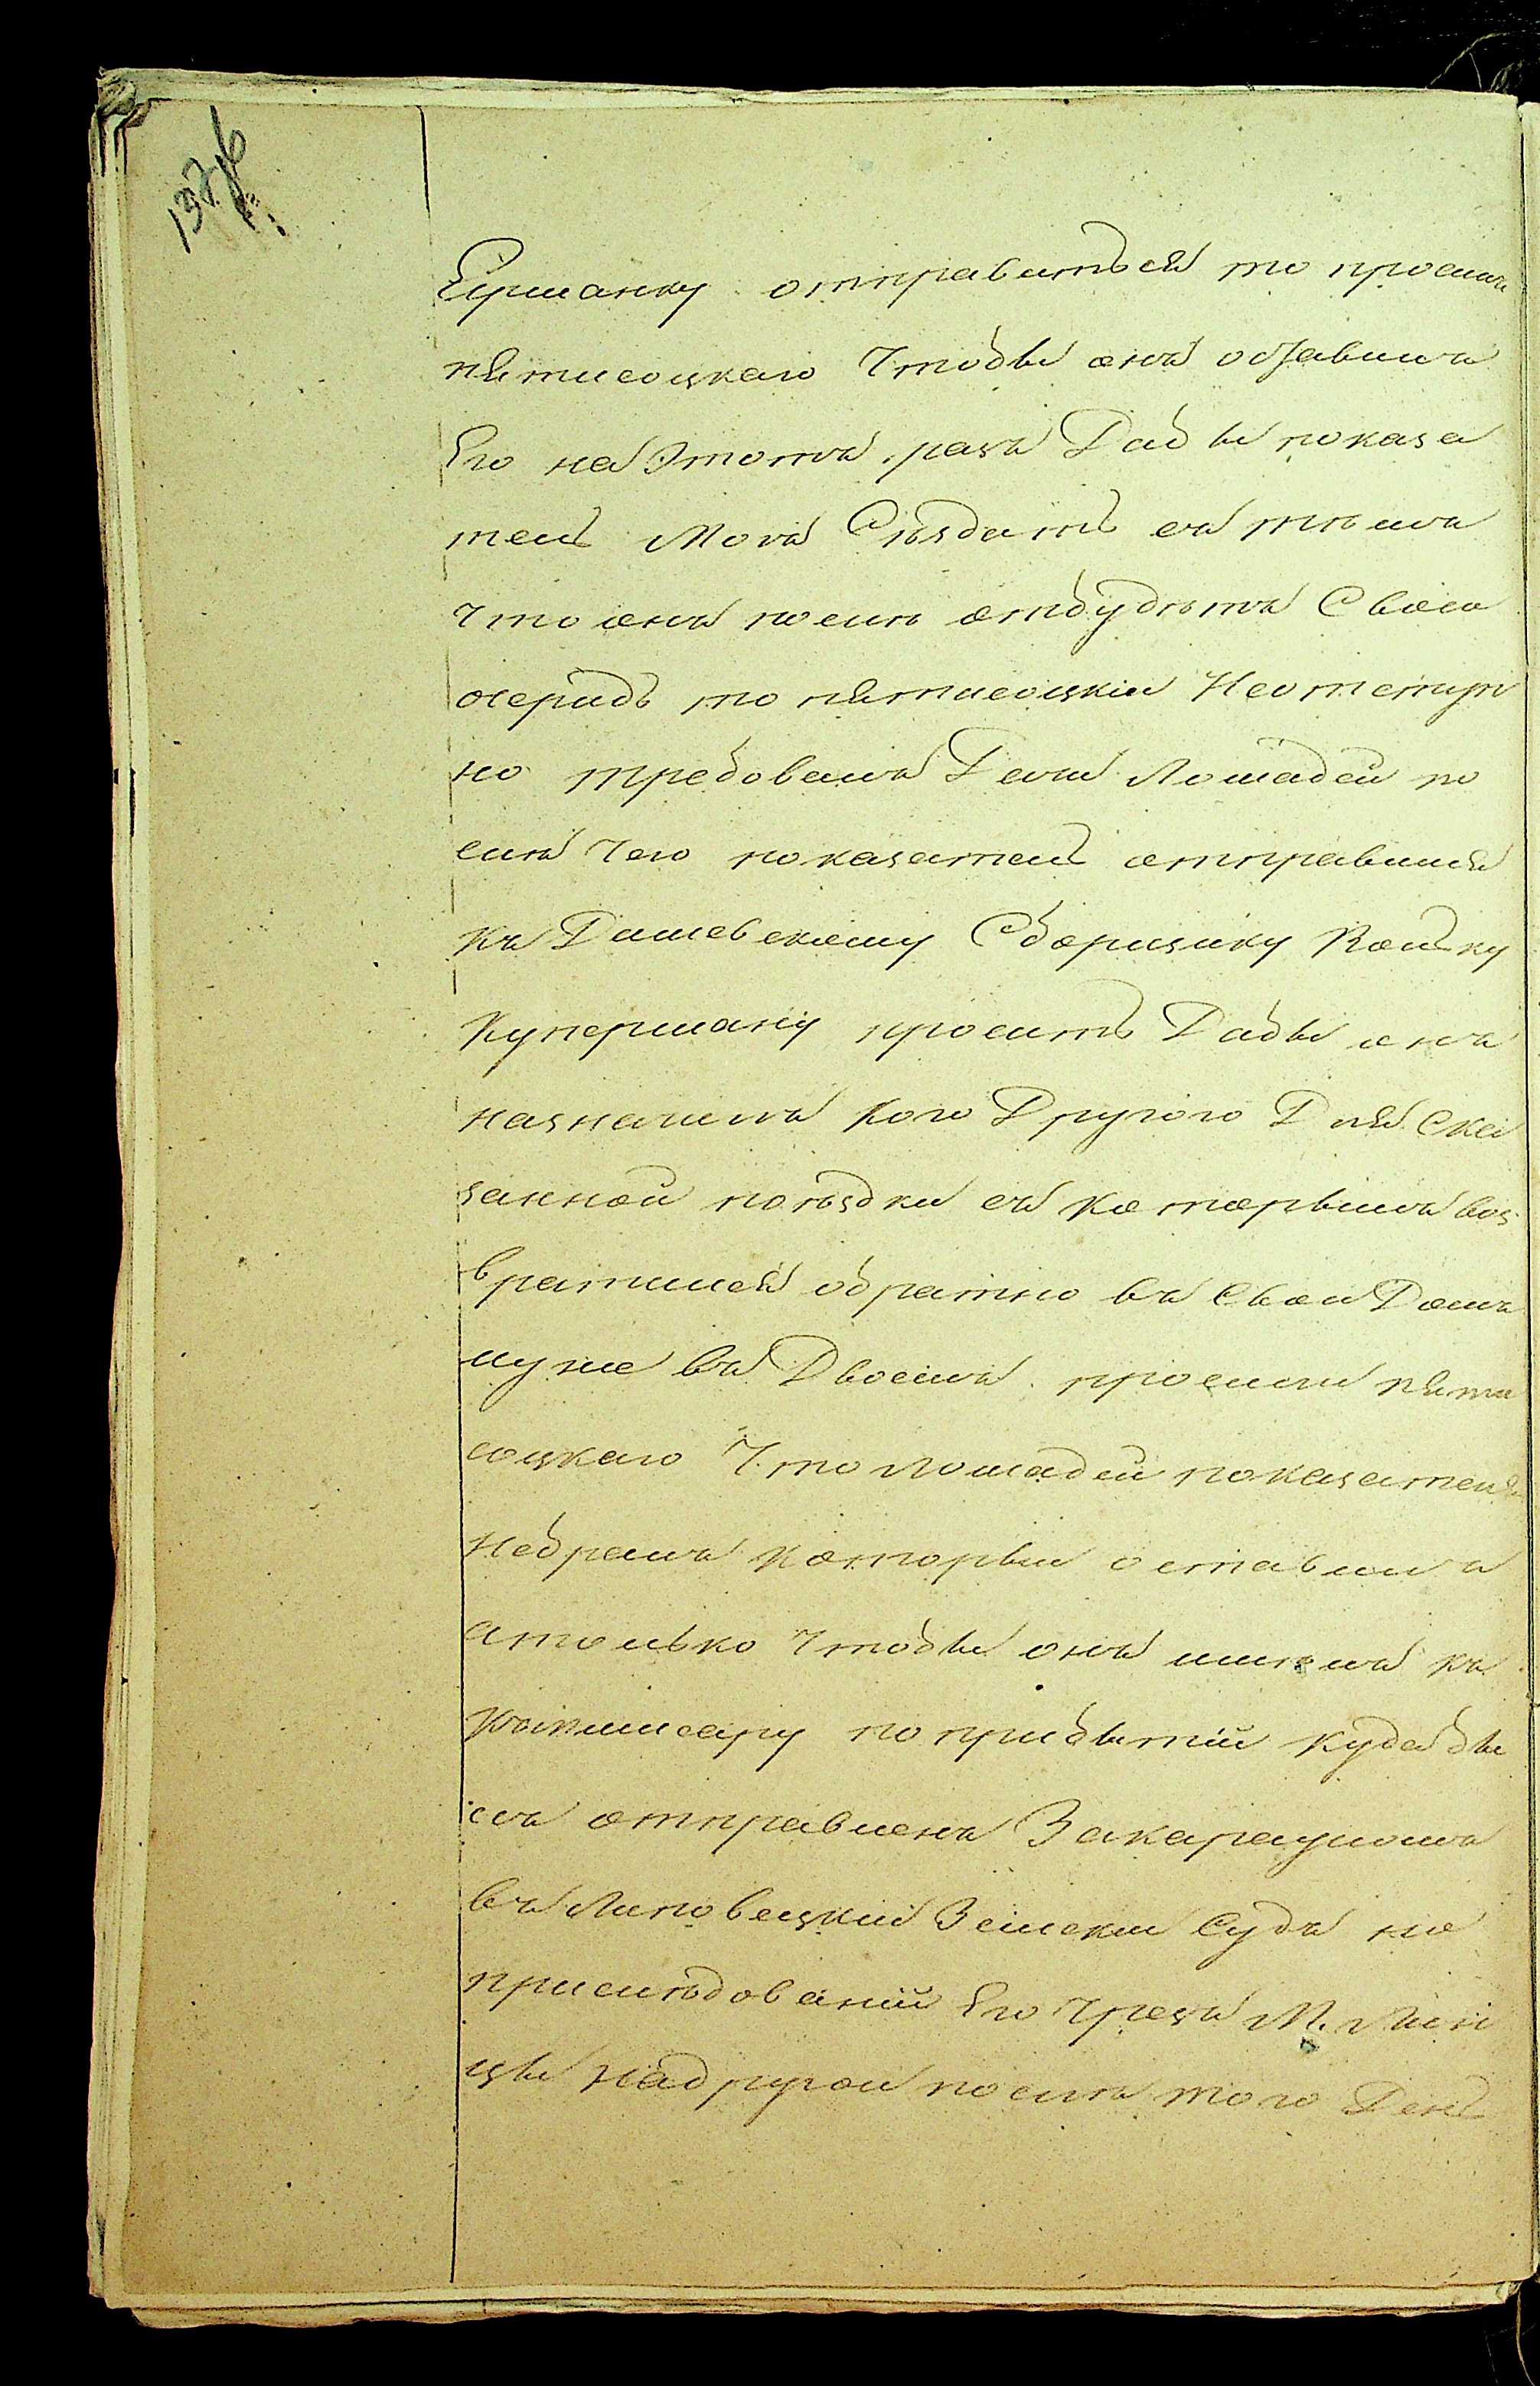 137
Ершанку отправиться то просилъ
пятисоцкаго Чтобы онъ оставилъ
Его на Этотъ разъ Дабы показа
тель Могъ Съѣздить съ тѣмъ
что онъ послѣ отбудетъ Свою
очередь то пятисоцкій Неотступ
но требовалъ Дачи Лошадей по
слѣ чего показатель отправился
къ Дашевскому Сборщику Волку
Куперману просить Дабы онъ
назначилъ Кого Другого Для Ска
занной поѣздки съ Которымъ воз
вратился обратно въ Свой Домъ
и уже въ Двоемъ просили пяти
соцкаго Что Лошадей показателя
Небралъ Который оставилъ
а только Чтобы онъ шолъ къ
Коммисару по прибытіи куда бы
лъ отправленъ За карауломъ
въ Липовецкій Земски Судъ но
прислѣдованіи Его Чрезъ М. Лин
цы На другой послѣ того День